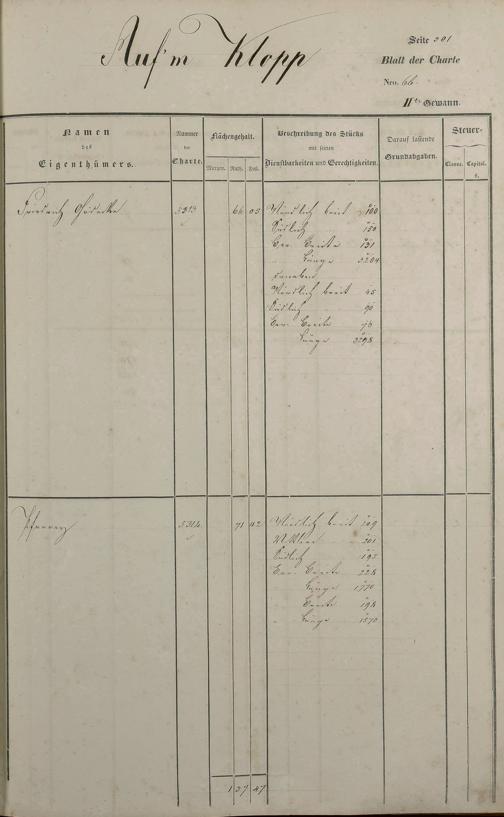 Auf'm Klopp
Seite 301
Blatt der Charte
Nro. 66.
IIte Gewann.
Namen
des
Eigenthümers.
Nummer
der
Charte.
Flächengehalt.
Morgen. Ruth. Fuß.
Beschreibung des Stücks
mit seinen
Dienstbarkeiten und Gerechtigkeiten.
Darauf lastende
Grundabgaben.
Steuer-
Classe. Capital.
fl.
Friedrich
5313
66 05
Nördlich breit 160
Südlich 150
Ger. Breite 131
Länge 3204
Nördlich breit 45
Südlich 90
Ger. Breite
Länge 3298
Pfarrey
5314
71 42
Nördlich breit 109
Mitten 201
Südlich
Ger. Breite 228
Länge 1770
Breite 198
Länge 1570
137 47